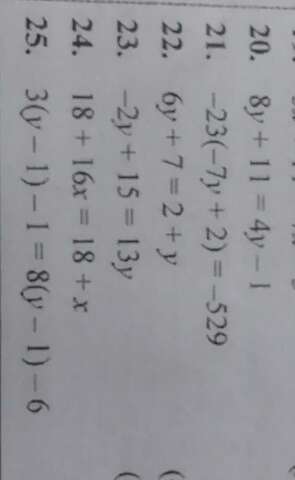 20. 8y + 11 = 4y – 1
21. –23(–7y + 2) = –529
22. 6y + 7 = 2 + y
23. –2y + 15 = 13y
24. 18 + 16x = 18 + x
25. 3(y – 1) – 1 = 8(y – 1) – 6